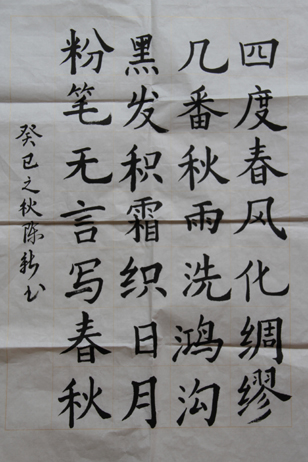 四度春风化绸缪
几番秋雨洗鸿沟
黑发积霜织日月
粉笔无言写春秋
癸巳之秋陈新书